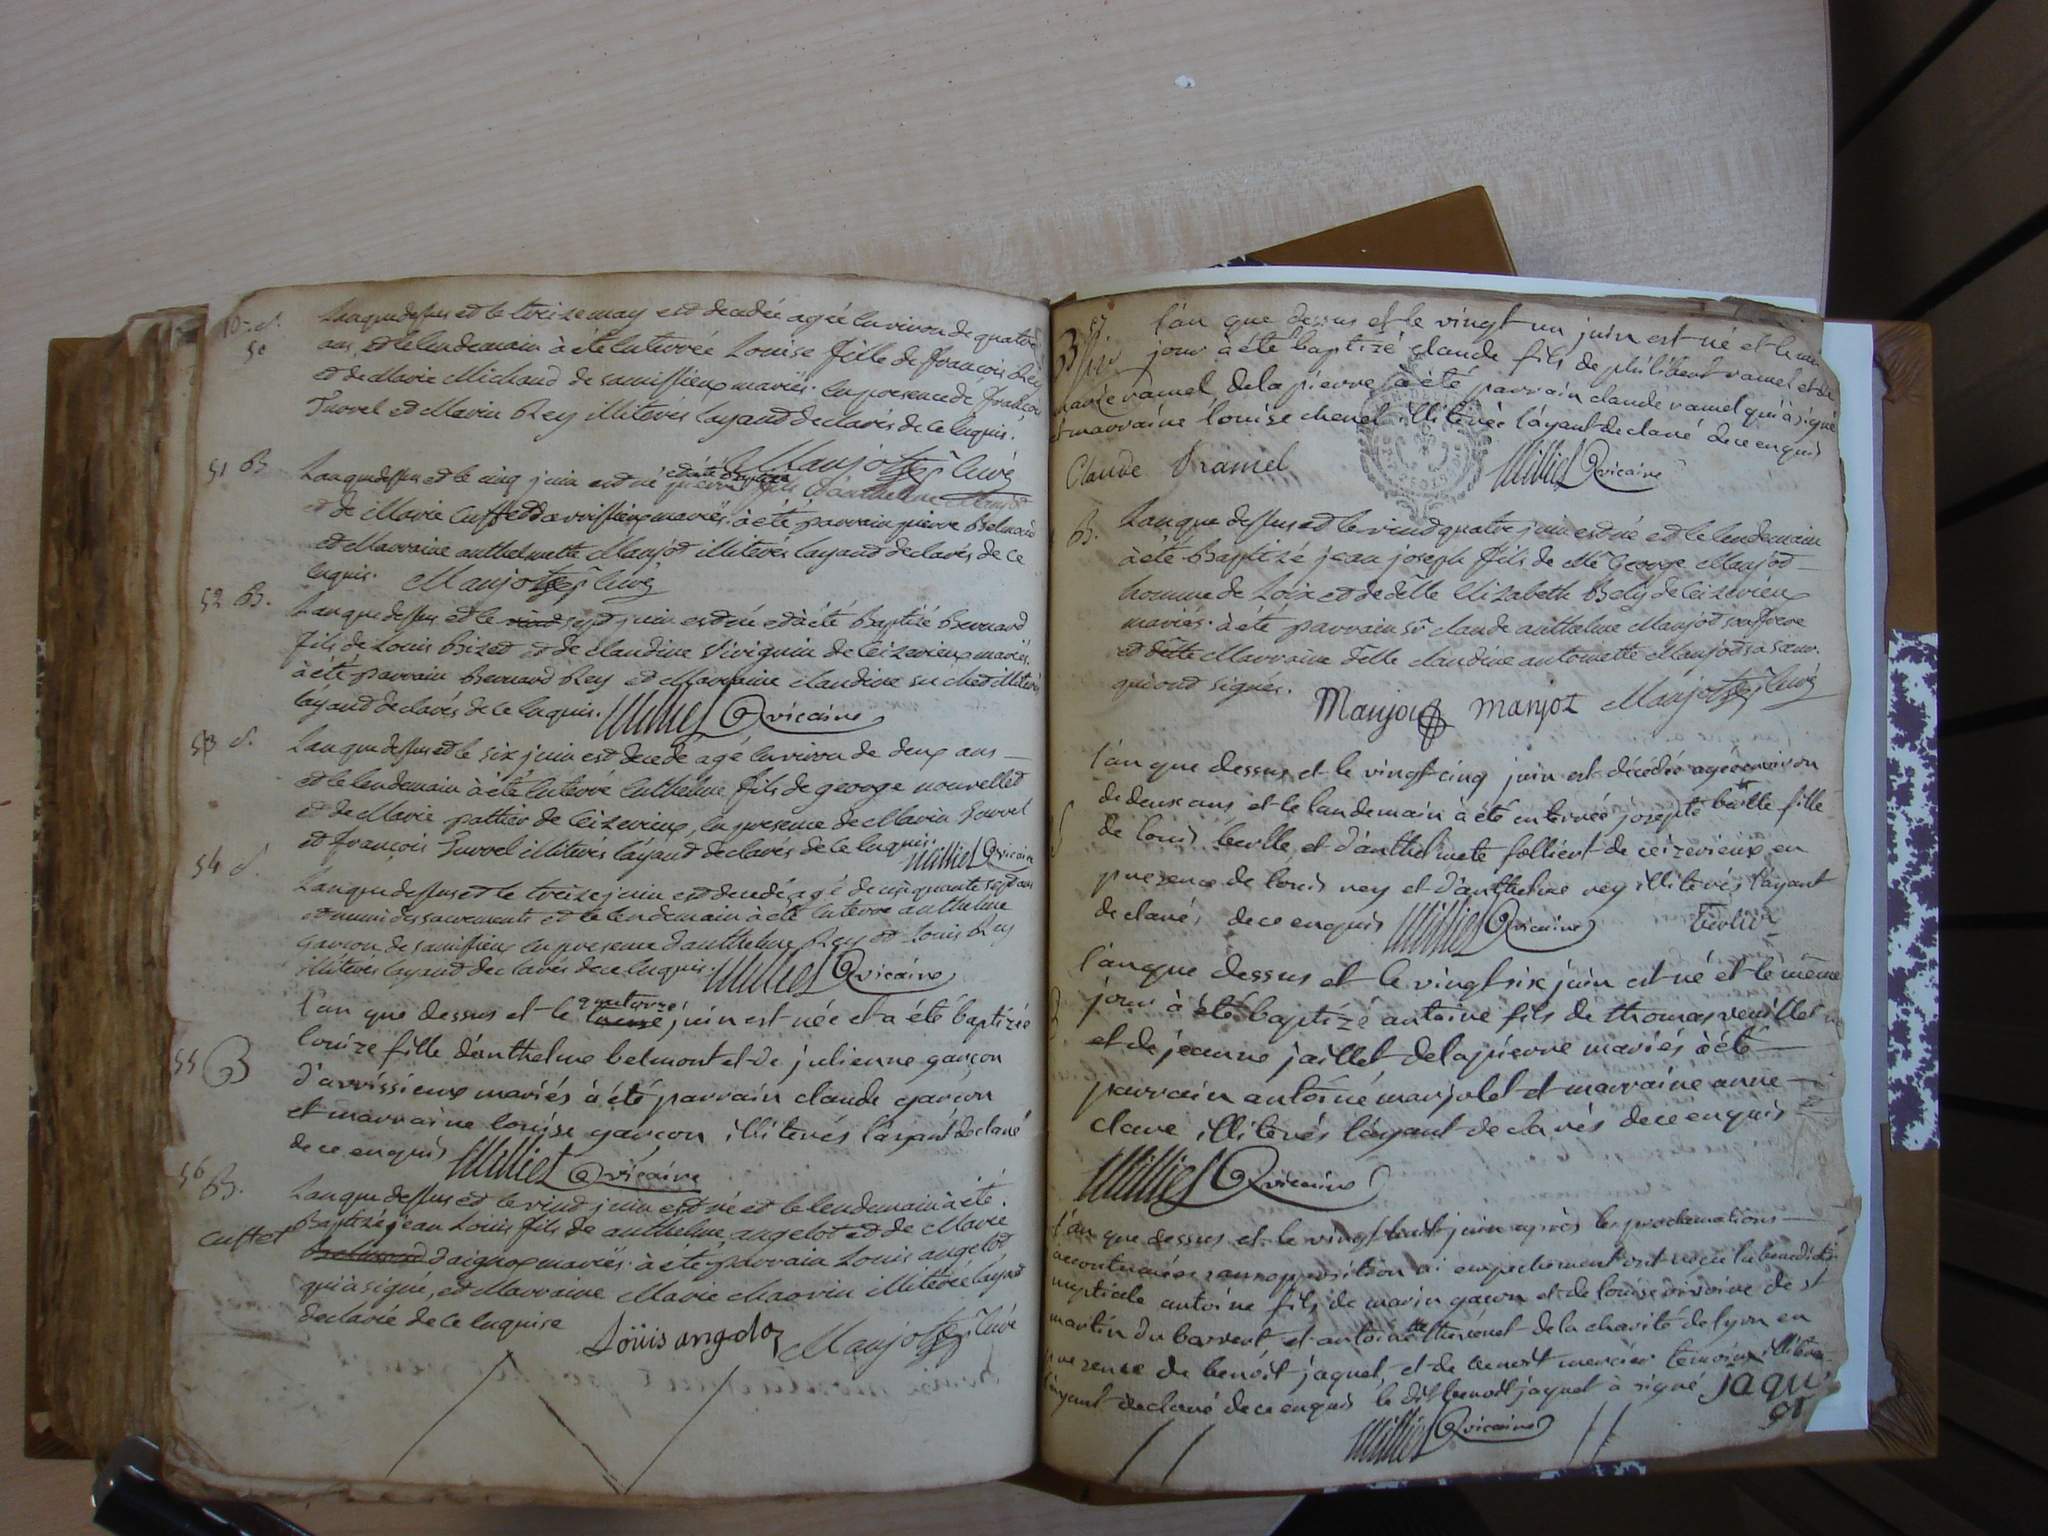 50 d.
L'an que dessus et le treize may est decedée agée environ de quatre
ans, et le lendemain à été enterrée Louise fille de françois Rey
et de Marie Michaud de samissieux mariés. en presence de françois
Turrel et Marin Rey illiterés layant declarés de ce enquis.
Manjot curé
51 B
L'an que dessus et le cinq juin est né et à été baptizé pierre fils d'anthelme Manjot
et de Marie Cuffet d'arvissieux mariés. à été parrain pierre Belmond
et Marraine anthelmette Manjot illiterés layant declarés de ce
enquis. Manjot curé
52 B.
L'an que dessus et le vind sept juin est né et à été Baptizé Bernard
fils de Louis Bizet et de Claudine Vivignin de Ceizerieux mariés.
à été parrain Bernard Rey et Marraine Claudine suchet illiterés
layant declarés de ce enquis. Milliet vicaire
53 d.
L'an que dessus et le six juin est decedé agé environ de deux ans
et le lendemain à été enterré Enthelme fils de george nouvellet
et de Marie pattier de Ceizerieux, en presence de Marin Turrel
et françois Turrel illiterés layant declarés de ce enquis. Milliet vicaire
54 d.
L'an que dessus et le treize juin est decedé agé de cinquante sept ans
et muni des sacrements et le lendemain à été enterré anthelme
garcon de samissieux en presence d'anthelme Rey et Louis Rey
illiterés layant declarés de ce enquis. Milliet vicaire
55 B
l'an que dessus et le quatorze juin est née et a été baptizée
louize fille d'anthelme belmont et de julienne garçon
d'arvissieux mariés à été parrain claude garçon
et marraine louise garçon illiterés l'ayant declaré
de ce enquis Milliet vicaire
56 B.
L'an que dessus et le vind juin est né et le lendemain à été
Baptizé jean Louis fils de anthelme angelot et de Marie
Cuffet
Belmond d'aignoz mariés. à été parrain Louis angelot
qui à signé, et Marraine Marie Chaovin illiterée layant
declarée de ce enquise
Loüis angeloz Manjot curé
57
B
l'an que dessus et le vingt un juin est né et le même
jour à été baptizé claude fils de philibert ramel et de
marie ramel de la pierre à été parrain claude ramel qui à signé
et marraine louise chenel illiterée l'ayant declaré de ce enquis
Claude Ramel Milliet vicaire
B.
L'an que dessus et le vind quatre juin est né et le lendemain
à été Baptizé jean joseph fils de Me George Manjot
homme de Loix et de delle Elizabeth Bely de Ceizerieux
mariés. à été parrain sr claude anthelme Manjot son frere
et Marraine delle claudine antoinette Manjot sa sœur.
qui ont signés.
Manjot manjot Manjot curé
l'an que dessus et le vingt cinq juin est décédée agée environ
de deux ans et le landemain à été enterrée josepte berlle fille
de louis berlle et d'anthelmete follliert de ceizerieux en
presence de louis rey et d'anthelme rey illiterés l'ayant
declarés de ce enquis Milliet vicaire
l'an que dessus et le vingt six juin est né et le même
jour à été baptizé antoine fils de thomas veuillet
et de jeanne jaillet de la pierre mariés à été
parrain antoine manjolet et marraine anne
clare illiterés l'ayant declarés de ce enquis
Milliet vicaire
l'an que dessus et le vingt huit juin après les proclamations
accoutumées sans opposition ni empechement ont reçu la benediction
nuptiale antoine fils de marin garçon et de louise divoine de st
martin du barvent et antoinette thevenet de la charité de lyon en
presence de benoit jaquet, et de benoit mercier temoins illiterés
l'ayant declaré de ce enquis le dit benoit jaquet à signé jaqu
et
Milliet vicaire